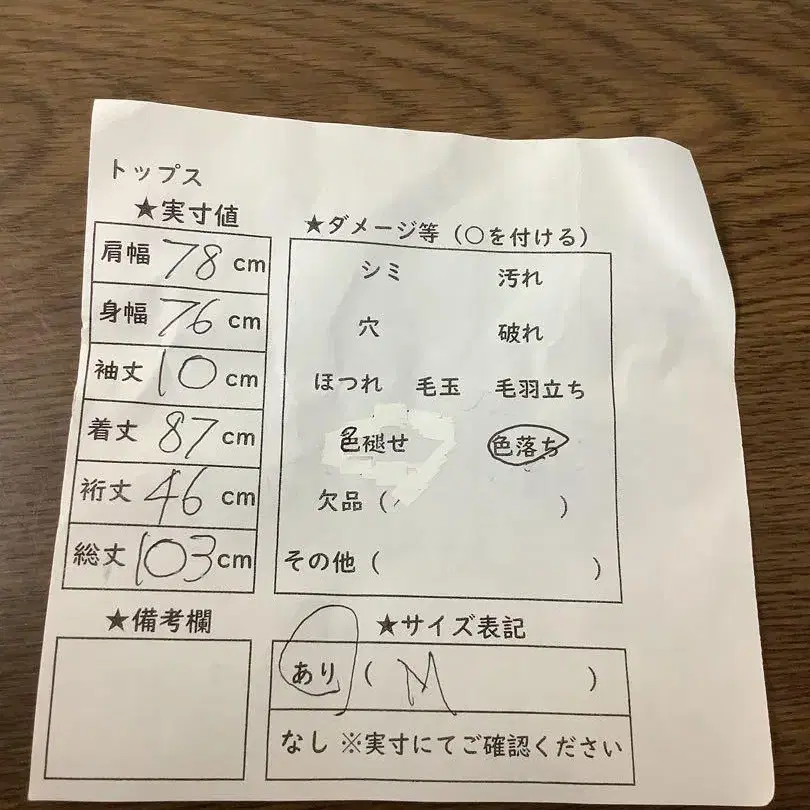 トップス
★実寸値
肩幅 78 cm
身幅 76 cm
袖丈 10 cm
着丈 87 cm
裄丈 46 cm
総丈 103 cm
★ダメージ等（○を付ける）
シミ 汚れ
穴 破れ
ほつれ 毛玉 毛羽立ち
色褪せ 色落ち
欠品（ ）
その他（ ）
★備考欄
★サイズ表記
あり（ M ）
なし ※実寸にてご確認ください